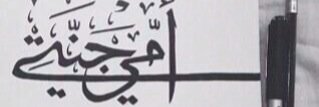 أمّي جَنّتي